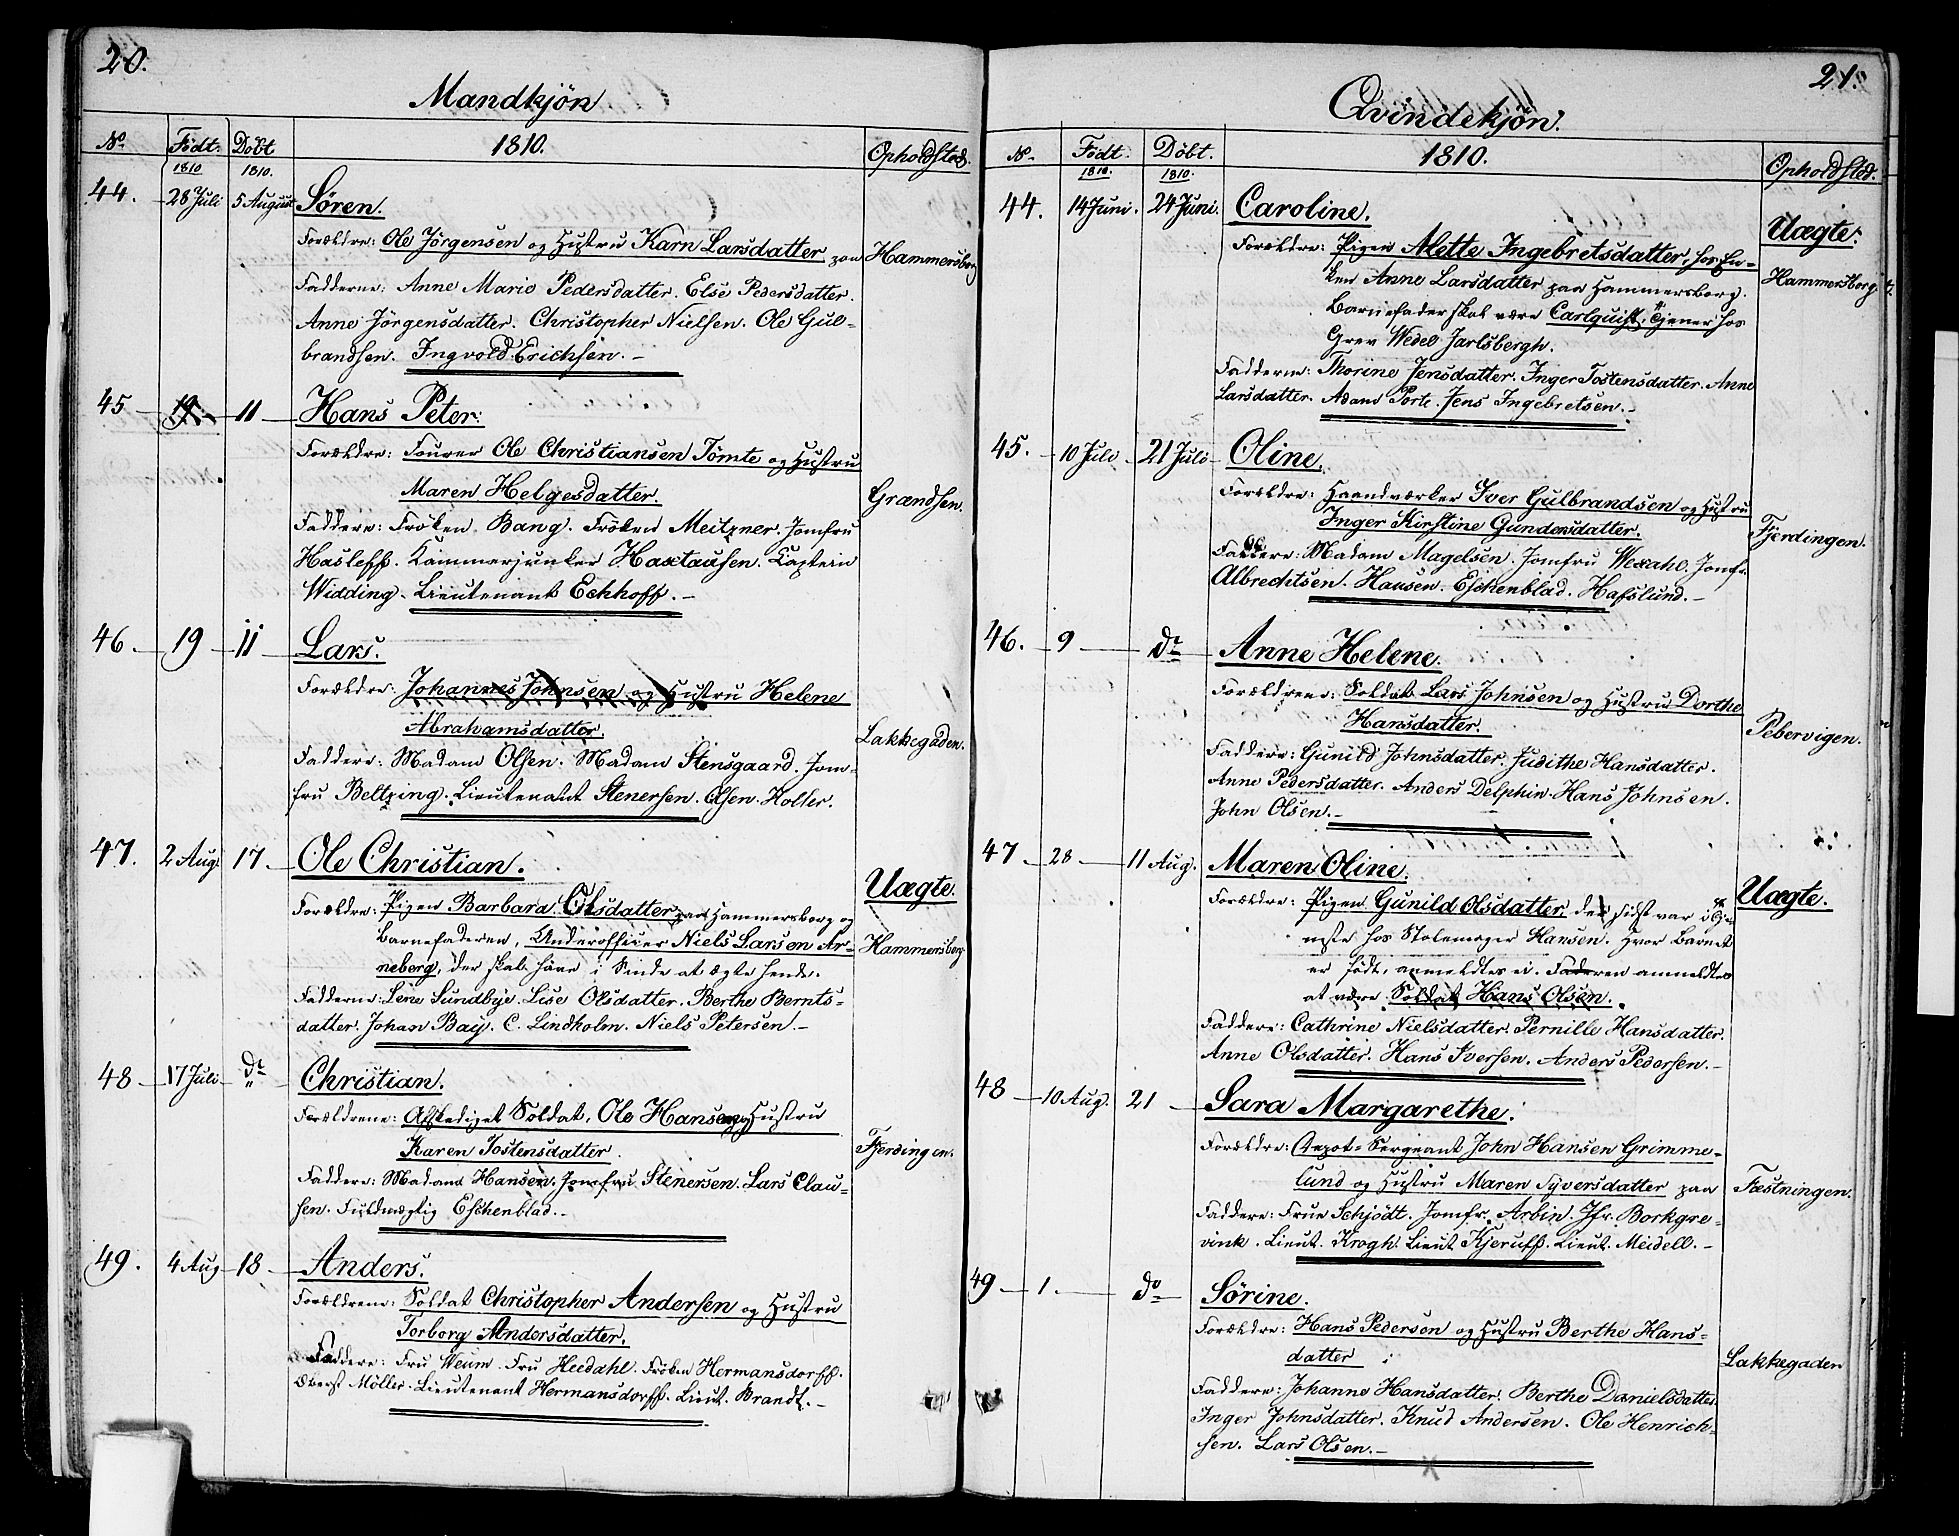 20.
Mandkjön
No. Födt. Döbt 1810. Opholdsted.
1810 1810.
44. 28 Juli 5 August Sören.
Forældre: Ole Jörgensen og Hustru Karn Larsdatter paa Hammersborg
Fadderne: Anne Marie Pedersdatter. Else Pedersdatter.
Anne Jörgensdatter. Christopher Nielsen. Ole Gul-
brandsen. Ingvold Erichsen. -
45 - 19. - 11 - Hans Peter.
Forældre: Fourer Ole Christiansen Tömte og Hustru
Maren Helgesdatter. Grændsen.
Faddere: Fröken Bang. Fröken Meitzner. Jomfru
Hasleff. Kammerjunker Haxtausen. Captein
Widding. Lieutenant Eckhoff. -
46 - 19 - 11 - Lars.
Forældre: Johannes Johnsen og Hustru Helene
Abrahamsdatter. Lakkegaden.
Faddere: Madam Olsen. Madam Stensgaard. Jom-
fru Beltzing. Lieutenant Stenersen. Olsen. Holter.
47. 2 Aug. 17. - Ole Christian. Uægte.
Forældre: Pigen Barbara Olsdatter paa Hammersborg og
Barnefaderen, Underofficer Niels Larsen Ar- Hammersborg
neberg, der skal have i Sinde at ægte hende.
Fadderne: Lene Sundbye. Lise Olsdatter. Berthe Bernts-
datter. Johan Bay. C. Lindholm. Niels Petersen. -
48 - 17 Juli - do Christian.
Forældrene: Afskediget Soldat, Ole Hansen og Hustru
Karen Tostensdatter. Fjerdingen.
Faddere: Madam Hansen. Jomfru Stenersen. Lars Clau-
sen. Fuldmægtig Eschenblad. -
49. 4 Aug - 18 - Anders.
Forældrene: Soldat Christopher Andersen og Hustru
Torborg Andersdatter.
Faddere: Fru Weum. Fru Heedahl. Fröken Hermansdorff.
Oberst Möller. Lieutenant Hermansdorff. Lieut. Brandt. -
21.
Qvindekjön.
No. Födt. Döbt. 1810. Opholdsted.
1810. 1810.
44. 14 Juni. 24 Juni. Caroline. Uægte.
Forældre: Pigen Alette Ingebretsdatter, hos En-
ken Anne Larsdatter paa Hammersborg. Hammersborg.
Barnefader skal være Carlquist, Tjener hos
Grev Wedel Jarlsbergh.
Fadderne: Thorine Jensdatter. Inger Tostensdatter. Anne
Larsdatter. Adam Porte. Jens Ingebretsen. -
45. - 10 Juli - 21 Juli - Oline.
Forældre: Haandværker Iver Gulbrandsen og Hustru
Inger Kirstine Gundersdatter. Fjerdingen.
Faddere: Madam Magelsen. Jomfru Wexahl. Jomfr.
Albrechtsen. Hansen. Eschenblad. Hafslund. -
46. - 9 - do - Anne Helene.
Forældrene: Soldat Lars Johnsen og Hustru Dorthe
Hansdatter. Pebervigen.
Faddere: Gunild Johnsdatter. Judithe Hansdatter.
Anne Pedersdatter. Anders Delphin. Hans Johnsen.
John Olsen. -
47 - 28 - 11 Aug. Maren Oline.
Forældre: Pigen Gunild Olsdatter, der sidst var i Tje- Uægte.
neste hos Stolemager Hansen. Hvor Barnet
er født, anmeldtes ei. Faderen anmeldtes
at være Soldat Hans Olsen.
Faddere: Cathrine Nielsdatter. Pernille Hansdatter.
Anne Olsdatter. Hans Iversen. Anders Pedersen. -
48 - 10 Aug. 21 - Sara Margarethe.
Forældre: Depot-Sergeant John Hansen Grimme-
lund og Hustru Maren Syversdatter paa Fæstningen.
Faddere: Frue Schjödt. Jomfr. Arbin. Jfr. Borkgre-
vink. Lieut. Krogh. Lieut Kjerulf. Lieut. Meidell. -
49 - 1. - do - Sörine.
Forældre: Hans Pedersen og Hustru Berthe Hans-
datter i Lakkegaden
Faddere: Johanne Hansdatter. Berthe Danielsdatter.
Inger Johnsdatter. Knud Andersen. Ole Henrich-
sen. Lars Olsen. -